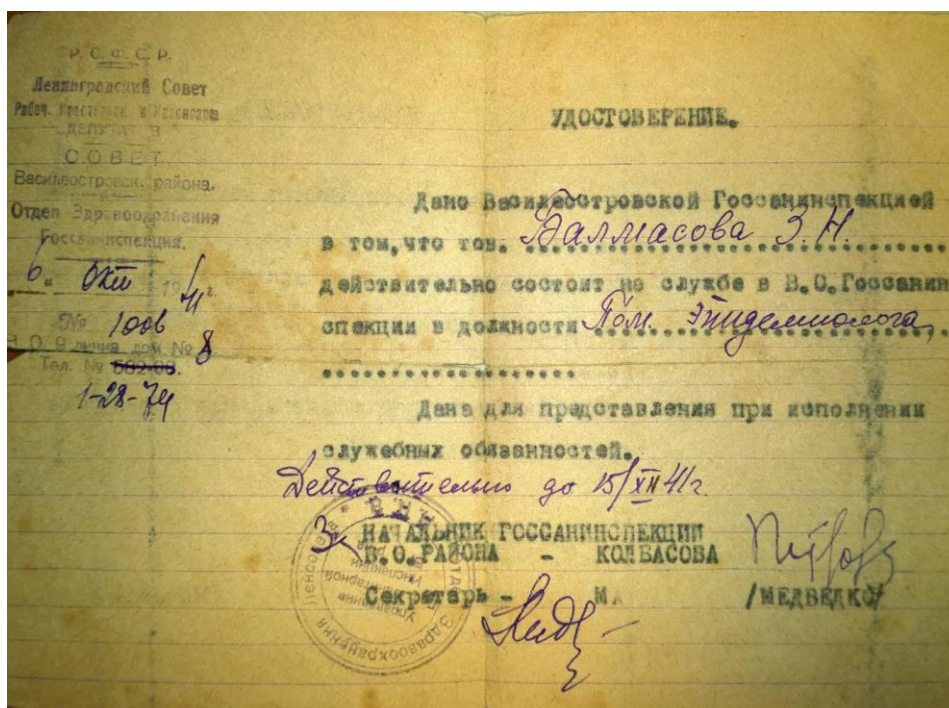 Р. С. Ф. С. Р.
Ленинградский Совет
Рабоч. Крестьянск. и Красноарм.
ДЕПУТАТОВ
СОВЕТ
Василеостровск. района.
Отдел Здравоохранения
Госсанинспекция.
6 " Окт 1941 г.
№ 1006
В. О. 9 линия дом № 8
Тел. № 582-08.
1-28-74
УДОСТОВЕРЕНИЕ.
Дано Василеостровской Госсанинспекцией
в том, что тов. Балмасова З. Н.
действительно состоит на службе в В.О.Госсанин
спекции в должности Пом. Эпидемиолога,
Дана для представления при исполнении
служебных обязанностей.
Действительно до 15/XII 41 г.
НАЧАЛЬНИК ГОССАНИНСПЕКЦИИ
В.О.РАЙОНА - КОЛБАСОВА
Секретарь - /МЕДВЕДКО/
Отдел Здравоохранения
Управление
Санитарной
Инспекции